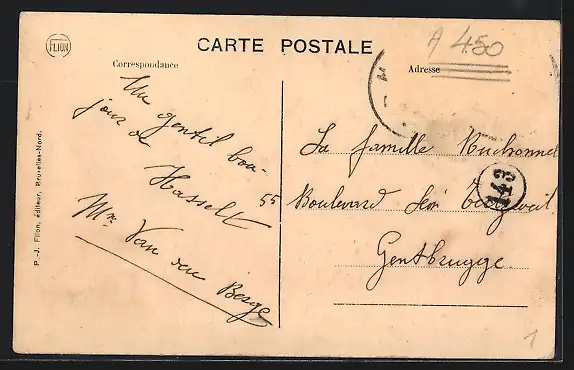 FLION
CARTE POSTALE
A 450
Correspondance
Adresse
Un gentil bon-
jour de
Hasselt
Mr Van den Berge
La famille
55 Boulevard Léon
Gentbrugge.
143
P.-J. Flion, éditeur, Bruxelles-Nord.
1